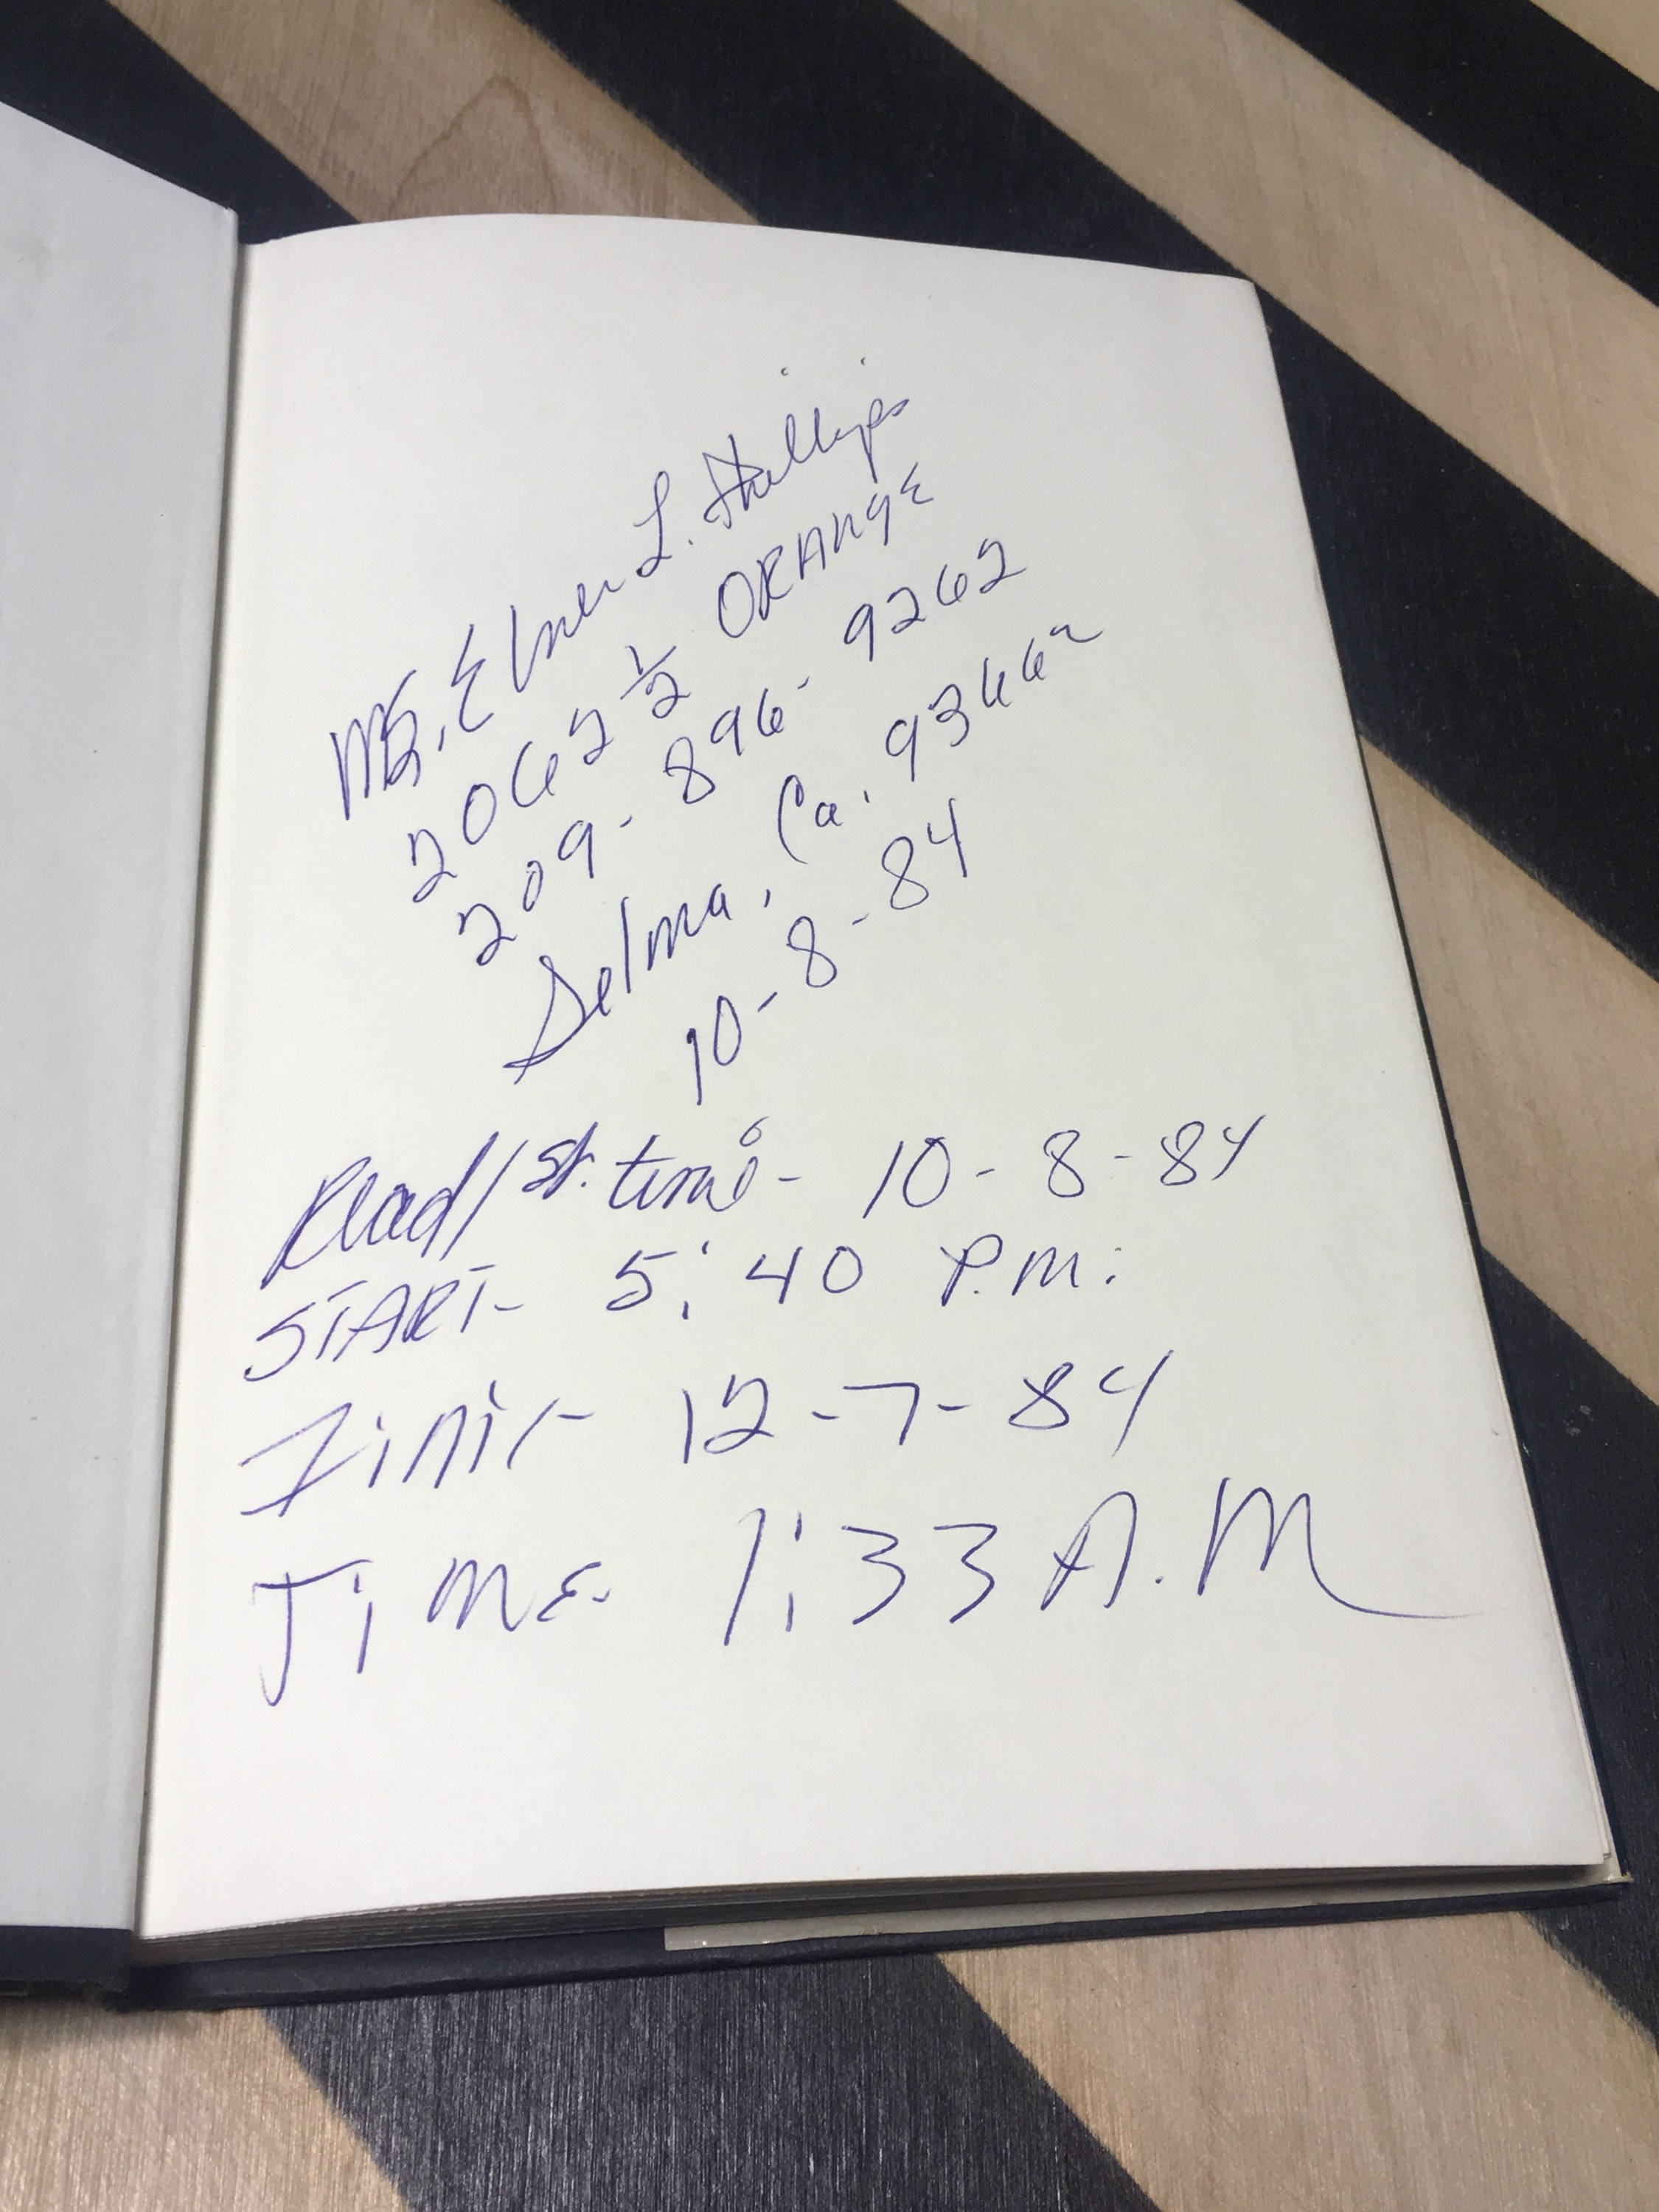 MR. Elmer L. Phillips
2062 1/2 ORANgE
209-896-9262
Selma, Ca. 93662
10-8-84
Read/st. time- 10-8-84
START- 5:40 P.M.
Fini- 12-7-84
Time. 1:33 A.M